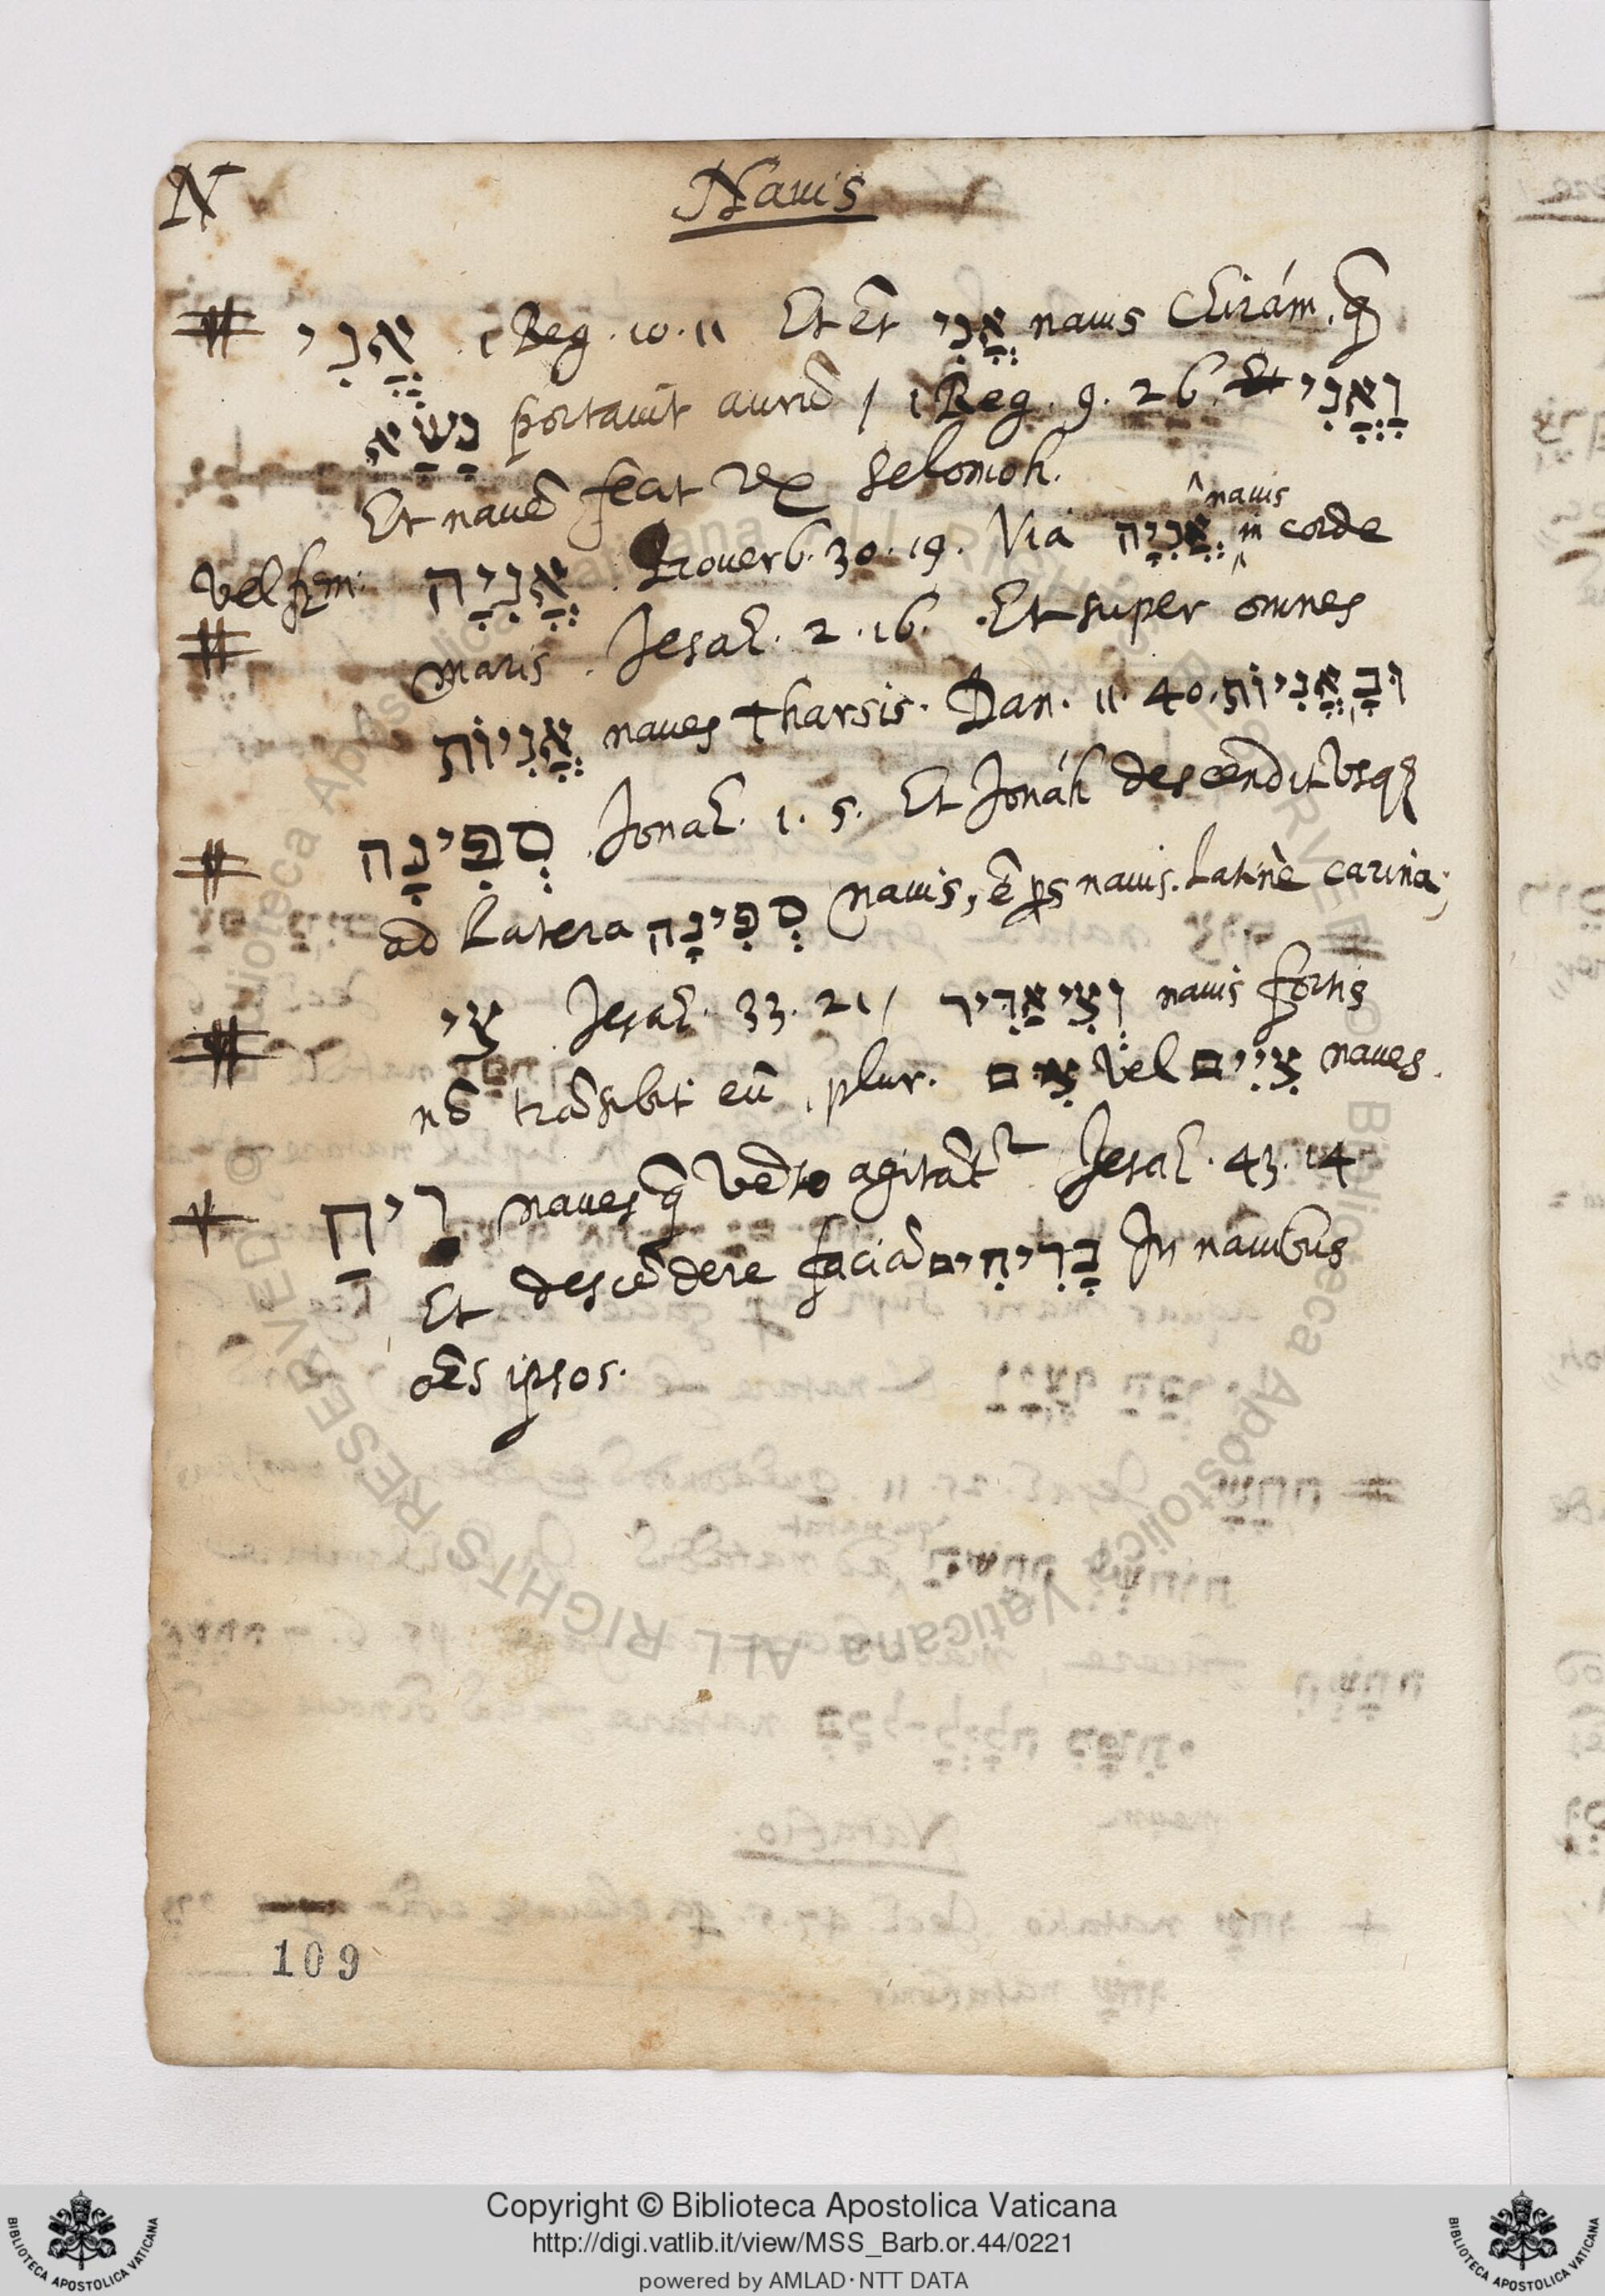 N
Nauis
אֳנִי . 1 Reg. 10. 11 Et et̃ אֳנִי nauis Chirám. q̃
נָשָׂא portauit aurũ / 1 Reg. 9. 26. וָאֳנִי
Et nauẽ fecit rex Selomoh.
nauis
Vel fęm: אֳנִיָה . Prouerb. 30. 19. Via אֳנִיָה in corde
maris. Jesah. 2. 16. Et super omnes
אֳנִיוֹת naues Tharsis. Dan. 11. 40. וּבָאֳנִיוֹת
סְפִינָה . Jonah. 1. 5. Et Jonáh descendit Vsqȝ
ad Latera סְפִינָה nauis, ẽ ps nauis. Latinè carina;
צִי . Jesah. 33. 21 / וְצִי אַדִיר nauis fortis
nõ trãsibit eũ, plur. צִים Vel צִיִים naues.
רִיחַ naues q̃ vẽto agitãt Jesah. 43. 14
Et descẽdere faciã בָרִיחִים In nauibus
oẽs ipsos.
109
Copyright © Biblioteca Apostolica Vaticana
http://digi.vatlib.it/view/MSS_Barb.or.44/0221
powered by AMLAD·NTT DATA
BIBLIOTECA APOSTOLICA VATICANA
BIBLIOTECA APOSTOLICA VATICANA
© Biblioteca Apostolica Vaticana ALL RIGHTS RESERVED
© Biblioteca Apostolica Vaticana ALL RIGHTS RESERVED